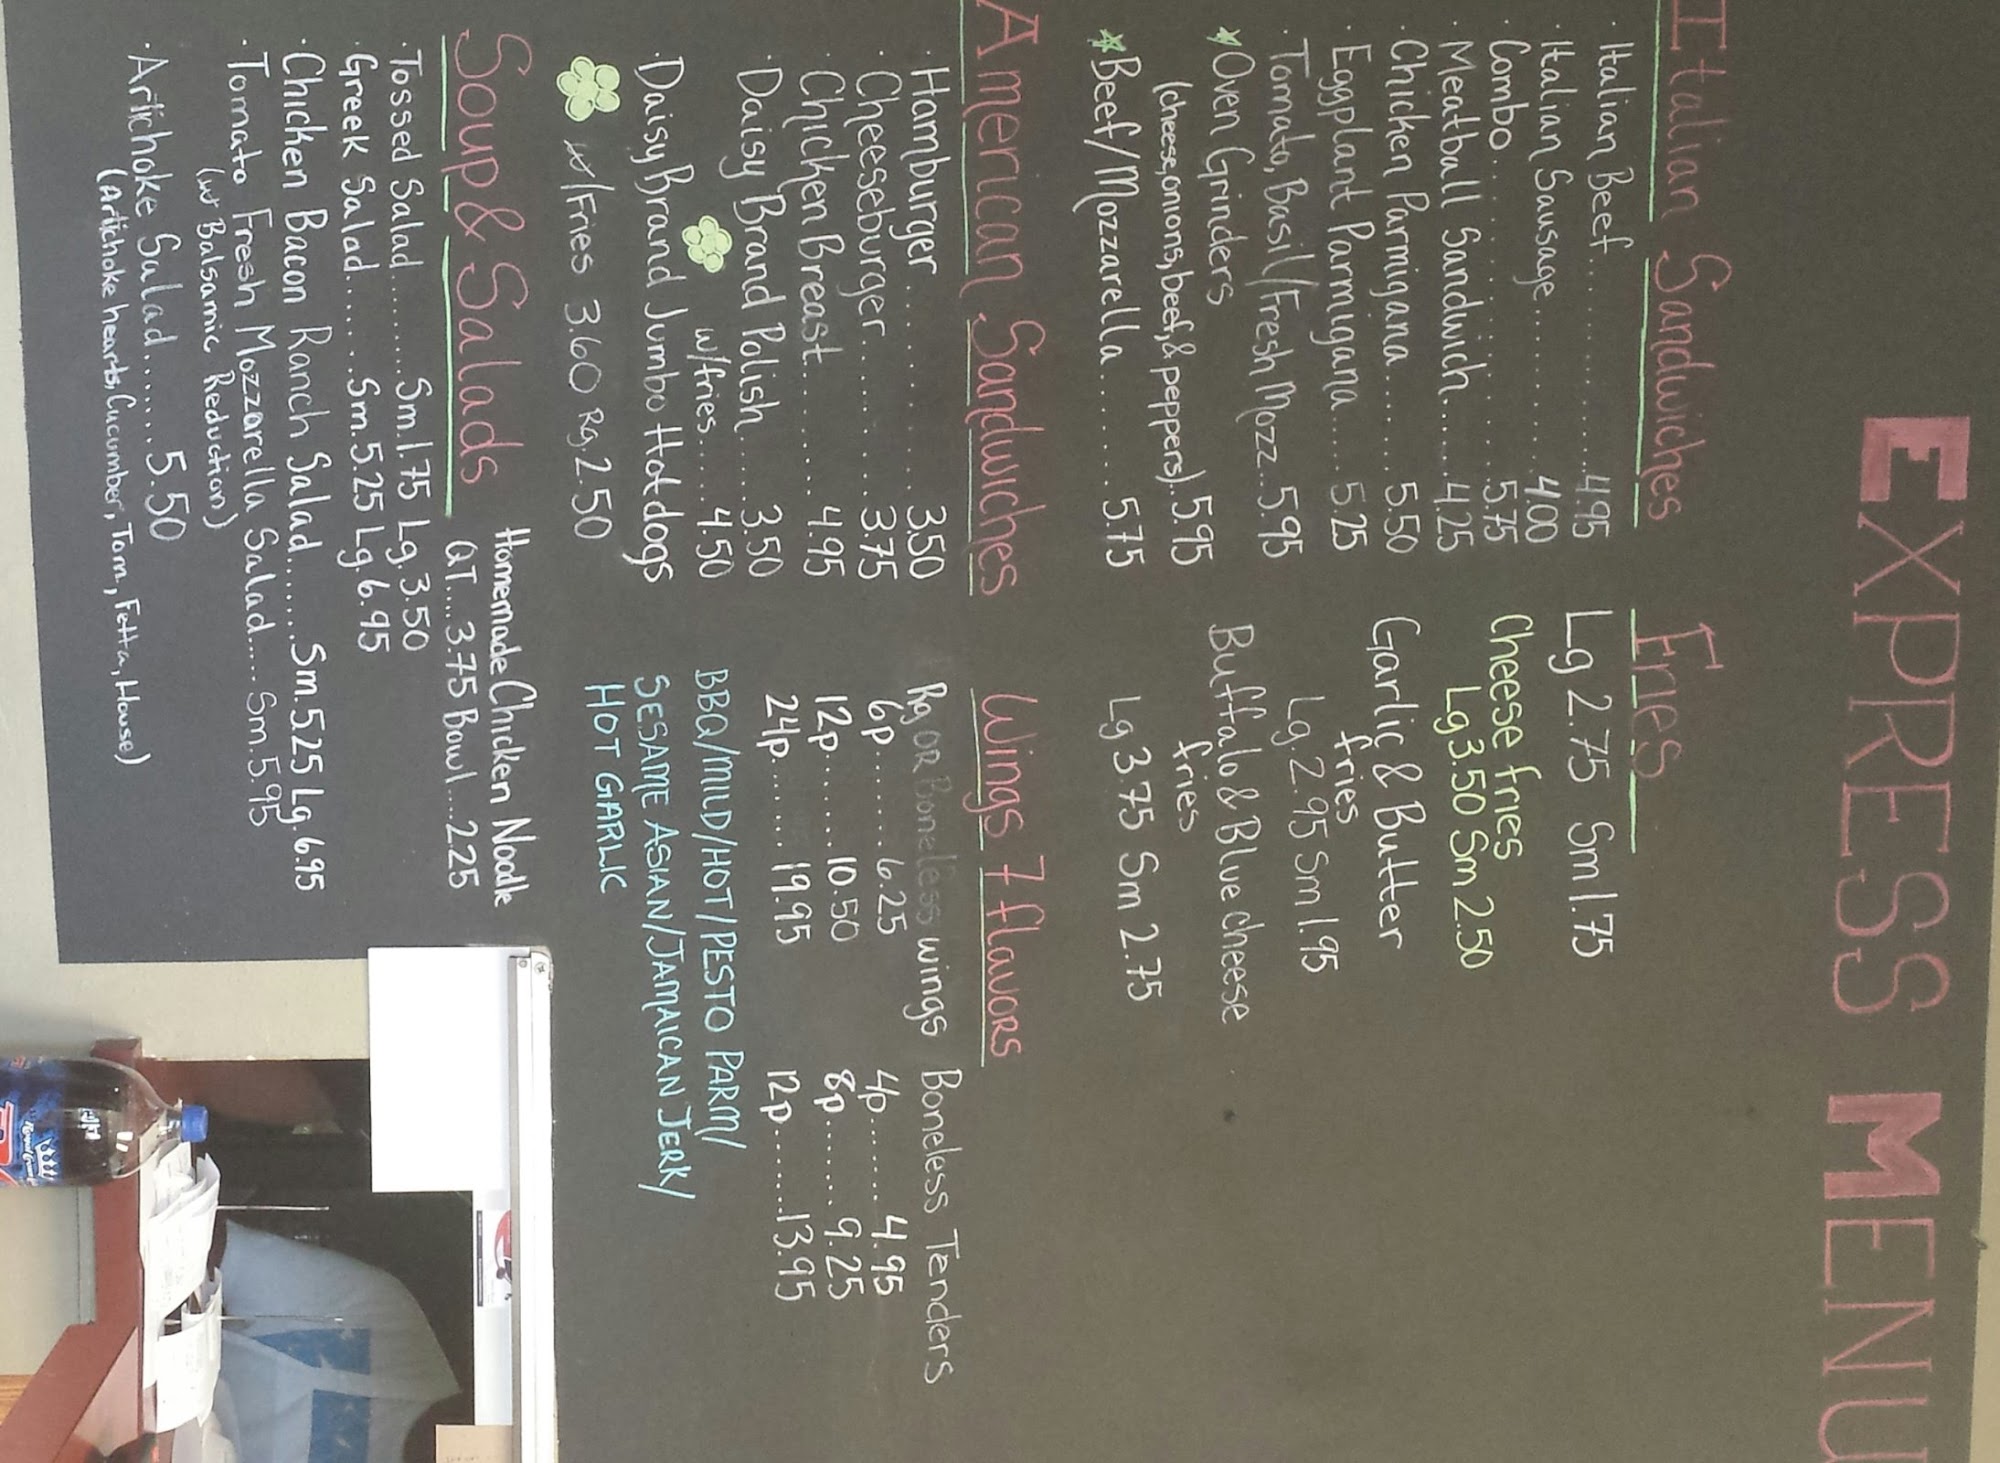 EXPRESS MENU
Italian Sandwiches
· Italian Beef............4.95
· Italian Sausage..........4.00
· Combo....................5.75
· Meatball Sandwich.....4.25
· Chicken Parmigiana......5.50
· Eggplant Parmigana.....5.25
· Tomato, Basil/Fresh Mozz..5.95
· Oven Grinders
(cheese,onions,beef,& peppers)..5.95
· Beef/Mozzarella........5.75
Fries
Lg 2.75 Sm 1.75
Cheese fries
Lg 3.50 Sm 2.50
Garlic & Butter
fries
Lg. 2.95 Sm 1.95
Buffalo & Blue cheese
fries
Lg 3.75 Sm 2.75
American Sandwiches
· Hamburger............3.50
· Cheeseburger.........3.75
· Chicken Breast........4.95
· Daisy Brand Polish.....3.50
w/fries......4.50
· Daisy Brand Jumbo Hotdogs
w/Fries 3.60 Rg. 2.50
Wings 7 flavors
Rg OR Boneless wings
6p.......6.25
12p.......10.50
24p.......19.95
Boneless Tenders
4p.......4.95
8p.......9.25
12p.......13.95
BBQ/MILD/HOT/PESTO PARM/
SESAME ASIAN/JAMAICAN JERK/
HOT GARLIC
Soup & Salads
Homemade Chicken Noodle
QT....3.75 Bowl...2.25
· Tossed Salad........Sm.1.75 Lg.3.50
· Greek Salad........Sm.5.25 Lg.6.95
· Chicken Bacon Ranch Salad.......Sm.5.25 Lg.6.95
· Tomato Fresh Mozzarella Salad.....Sm.5.95
(w/ Balsamic Reduction)
· Artichoke Salad.........5.50
(Artichoke hearts, Cucumber, Tom, Fetta, House)